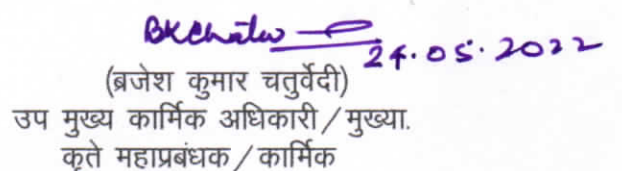 BKChatu
24.05.2022
(ब्रजेश कुमार चतुर्वेदी)
उप मुख्य कार्मिक अधिकारी/मुख्या.
कृते महाप्रबंधक/कार्मिक